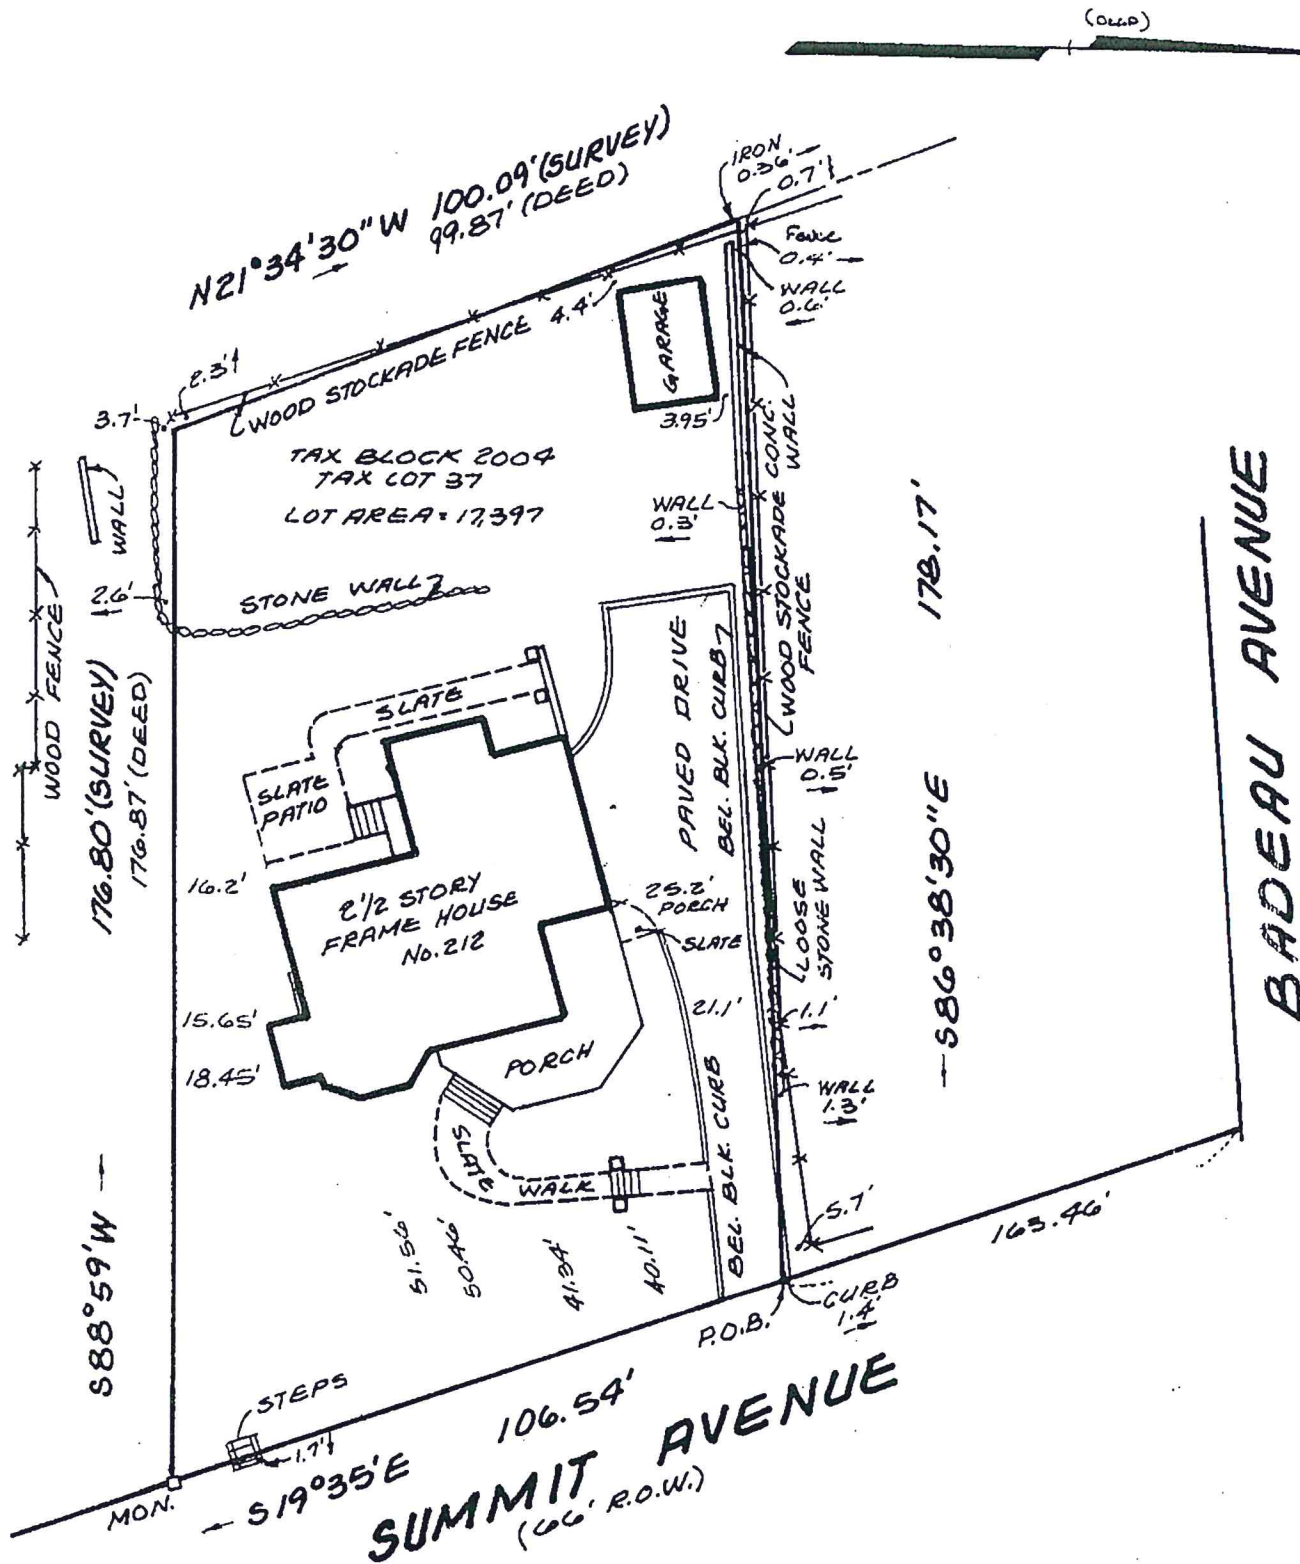 (DEED)
N21°34'30"W 100.09'(SURVEY)
99.87'(DEED)
IRON
0.36'
0.7'
Fence
0.4'
WALL
0.6'
2.3'
3.7'
WOOD STOCKADE FENCE
4.4'
GARAGE
3.95'
CONC.
WALL
TAX BLOCK 2004
TAX LOT 37
LOT AREA = 17,397
WALL
WOOD FENCE
2.6'
STONE WALL
WALL
0.3'
WOOD STOCKADE
FENCE
178.17'
BADEAU AVENUE
176.80'(SURVEY)
176.87'(DEED)
SLATE
SLATE
PATIO
PAVED DRIVE
BEL. BLK. CURB
WALL
0.5'
16.2'
2 1/2 STORY
FRAME HOUSE
No. 212
25.2'
PORCH
SLATE
LOOSE
STONE WALL
S86°38'30"E
15.65'
21.1'
1.1'
18.45'
PORCH
WALL
1.3'
SLATE
WALK
BEL. BLK. CURB
5.7'
163.46'
S88°59'W
51.56'
50.46'
41.34'
40.11'
P.O.B.
CURB
1.4'
STEPS
1.7'
106.54'
MON.
S19°35'E
SUMMIT AVENUE
(66' R.O.W.)